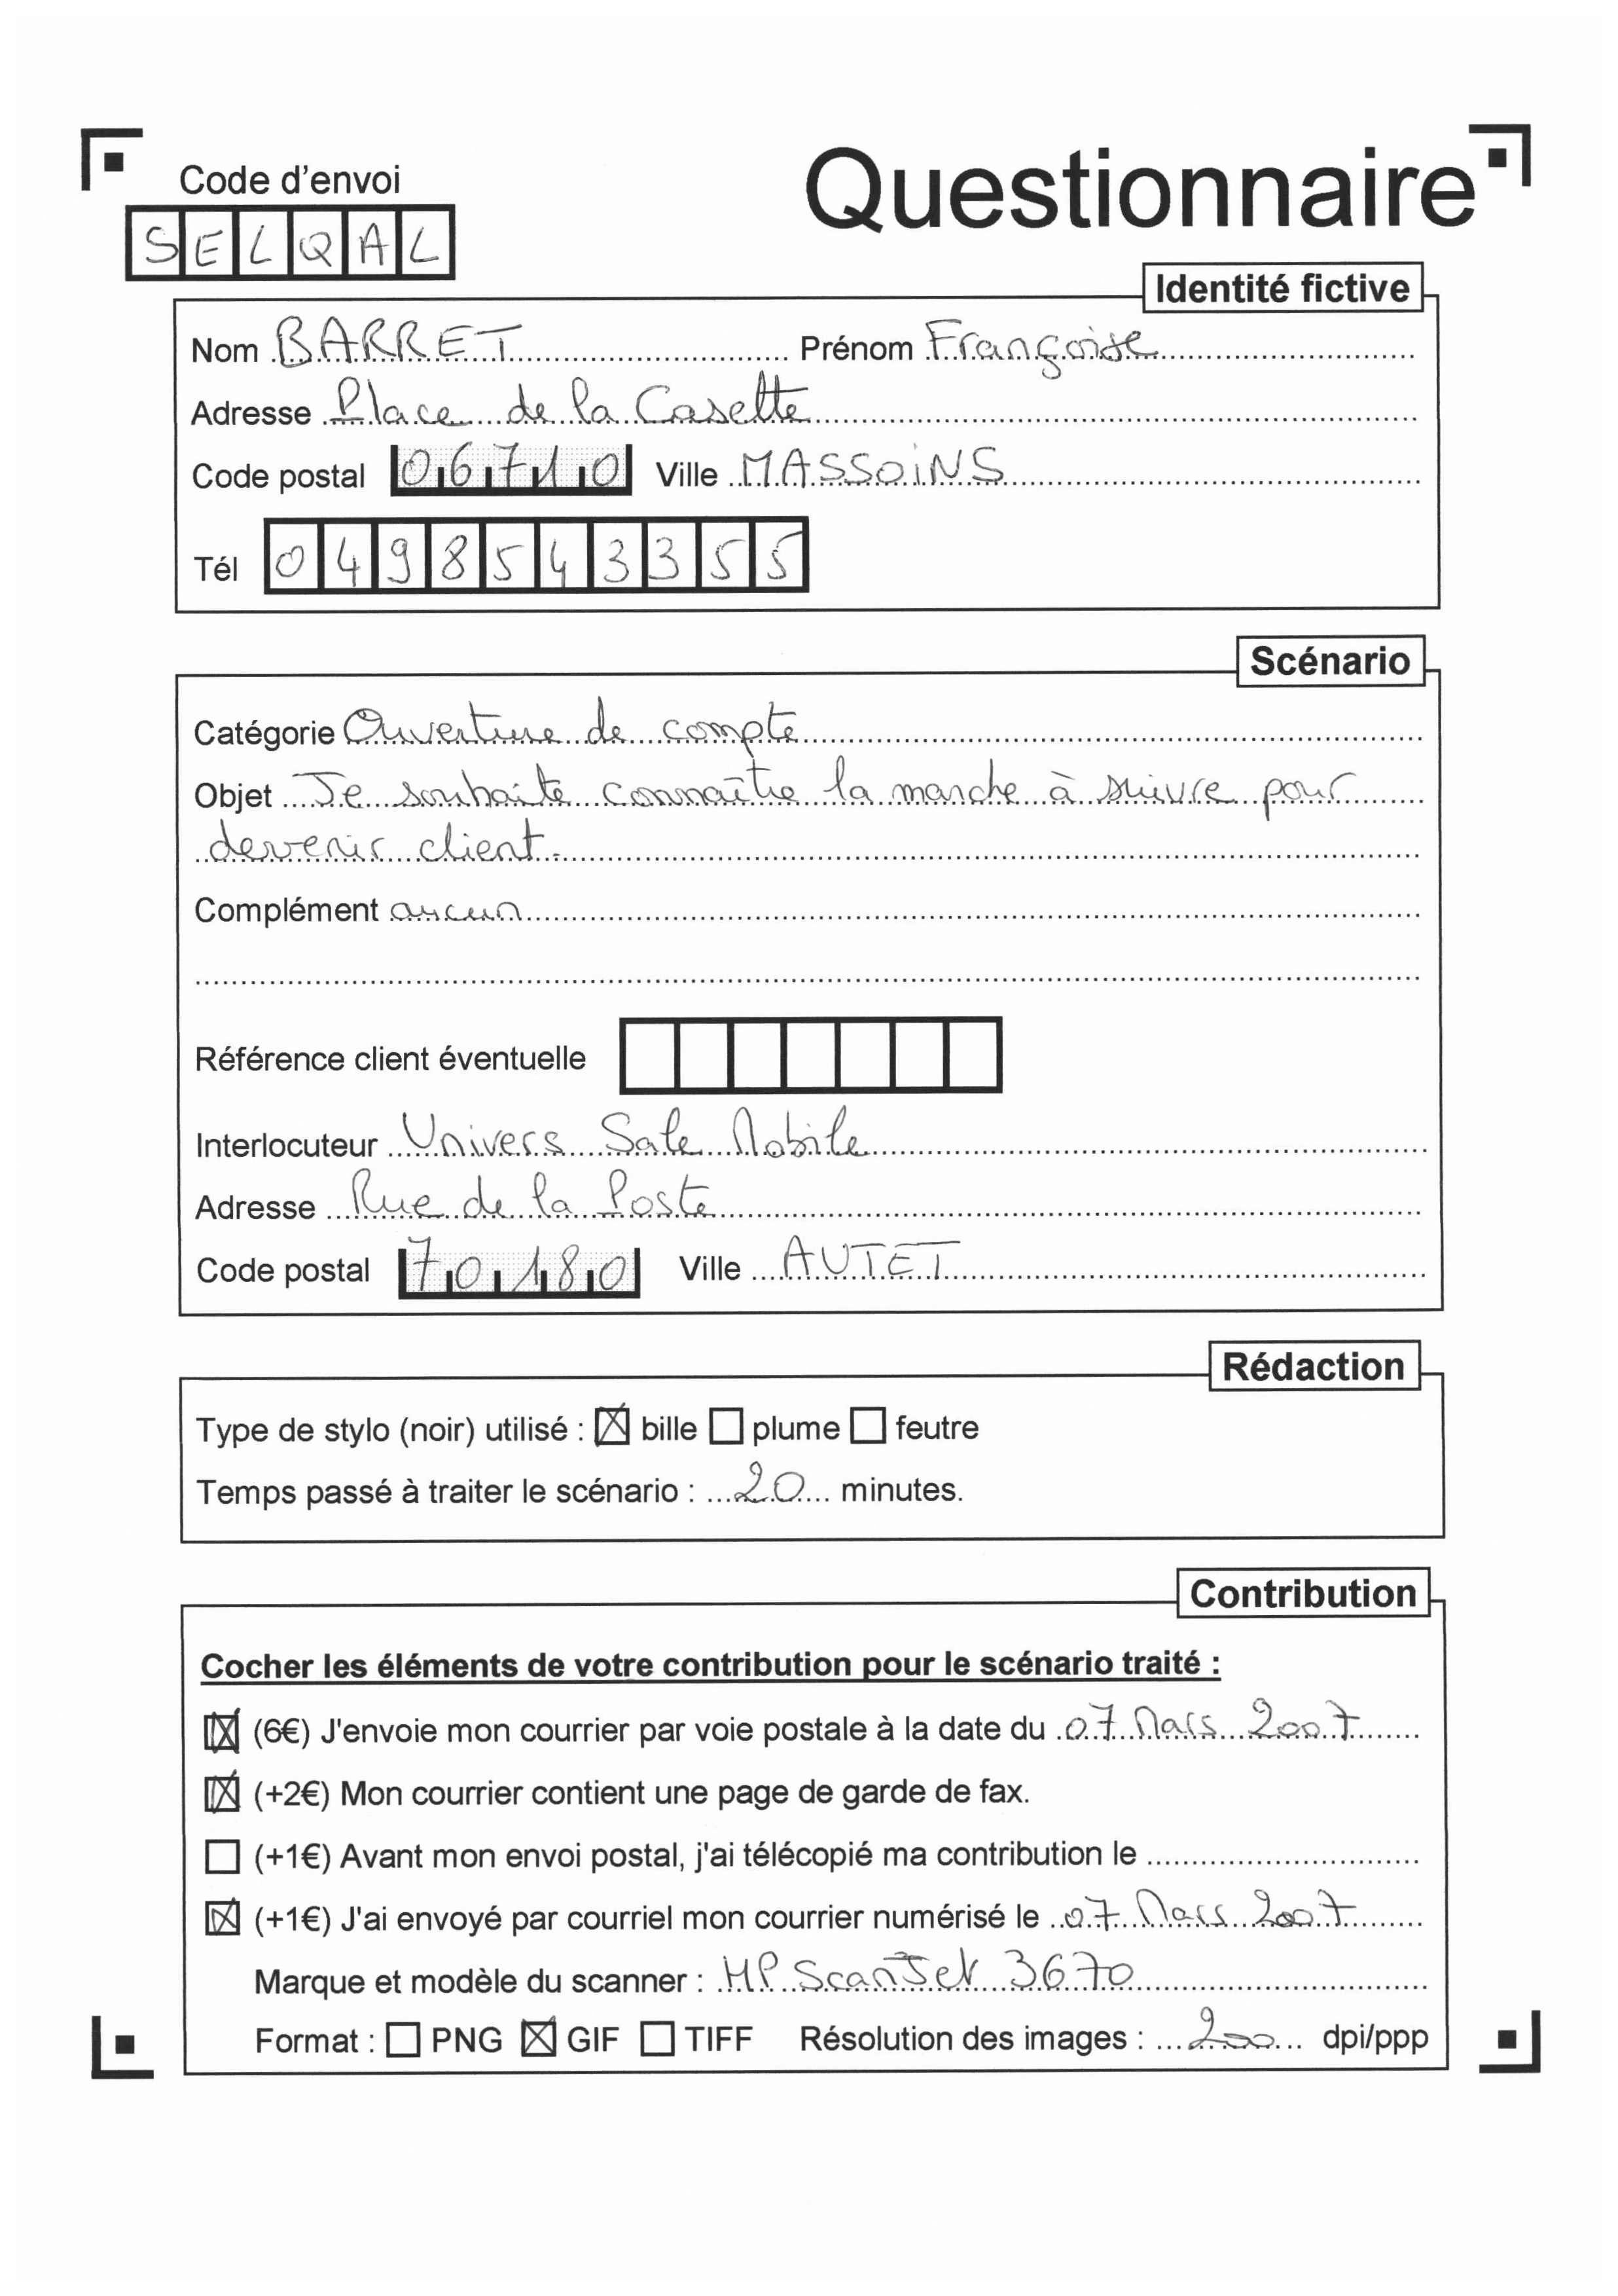 Code d'envoi
Questionnaire
SELQAL
Identité fictive
Nom BARRET Prénom Françoise
Adresse Place de la Casette
Code postal 06710 Ville MASSOINS
Tél 0498543355
Scénario
Catégorie Ouverture de compte
Objet Je souhaite connaître la marche à suivre pour
devenir client.
Complément aucun
Référence client éventuelle
Interlocuteur Univers Sale Mobile
Adresse Rue de la Poste
Code postal 70180 Ville AUTET
Rédaction
Type de stylo (noir) utilisé : bille plume feutre
Temps passé à traiter le scénario : 20 minutes.
Contribution
Cocher les éléments de votre contribution pour le scénario traité :
(6€) J'envoie mon courrier par voie postale à la date du 07 Mars 2007
(+2€) Mon courrier contient une page de garde de fax.
(+1€) Avant mon envoi postal, j'ai télécopié ma contribution le
(+1€) J'ai envoyé par courriel mon courrier numérisé le 07 Mars 2007
Marque et modèle du scanner : HP ScanJet 3670
Format : PNG GIF TIFF Résolution des images : 200 dpi/ppp